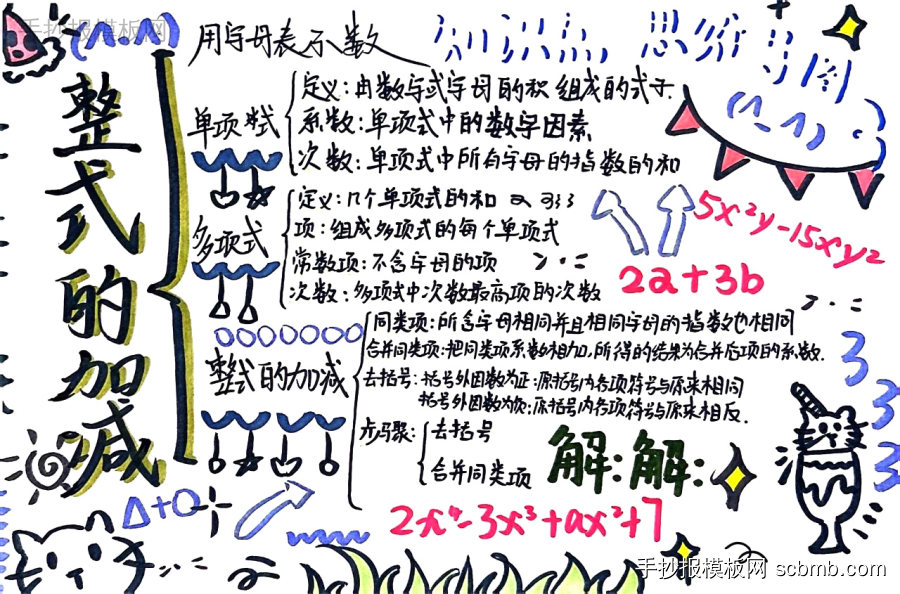 手抄报模板网
(^_^)
用字母表示数
知识点 思维导图
(^_^)
整式的加减
单项式
定义:由数字或字母的积组成的式子.
系数:单项式中的数字因素
次数:单项式中所有字母的指数的和
多项式
定义:几个单项式的和
项:组成多项式的每个单项式
常数项:不含字母的项
次数:多项式中次数最高项的次数
5x²y-15xy²
2a+3b
整式的加减
同类项:所含字母相同并且相同字母的指数也相同
合并同类项:把同类项系数相加,所得的结果为合并后项的系数.
去括号:括号外因数为正:原括号内各项符号与原来相同
括号外因数为负:原括号内各项符号与原来相反.
步骤:
去括号
合并同类项
解:解:
3
3
3
Δ+O
2x⁴-3x³+ax²+7
手抄报模板网 scbmb.com